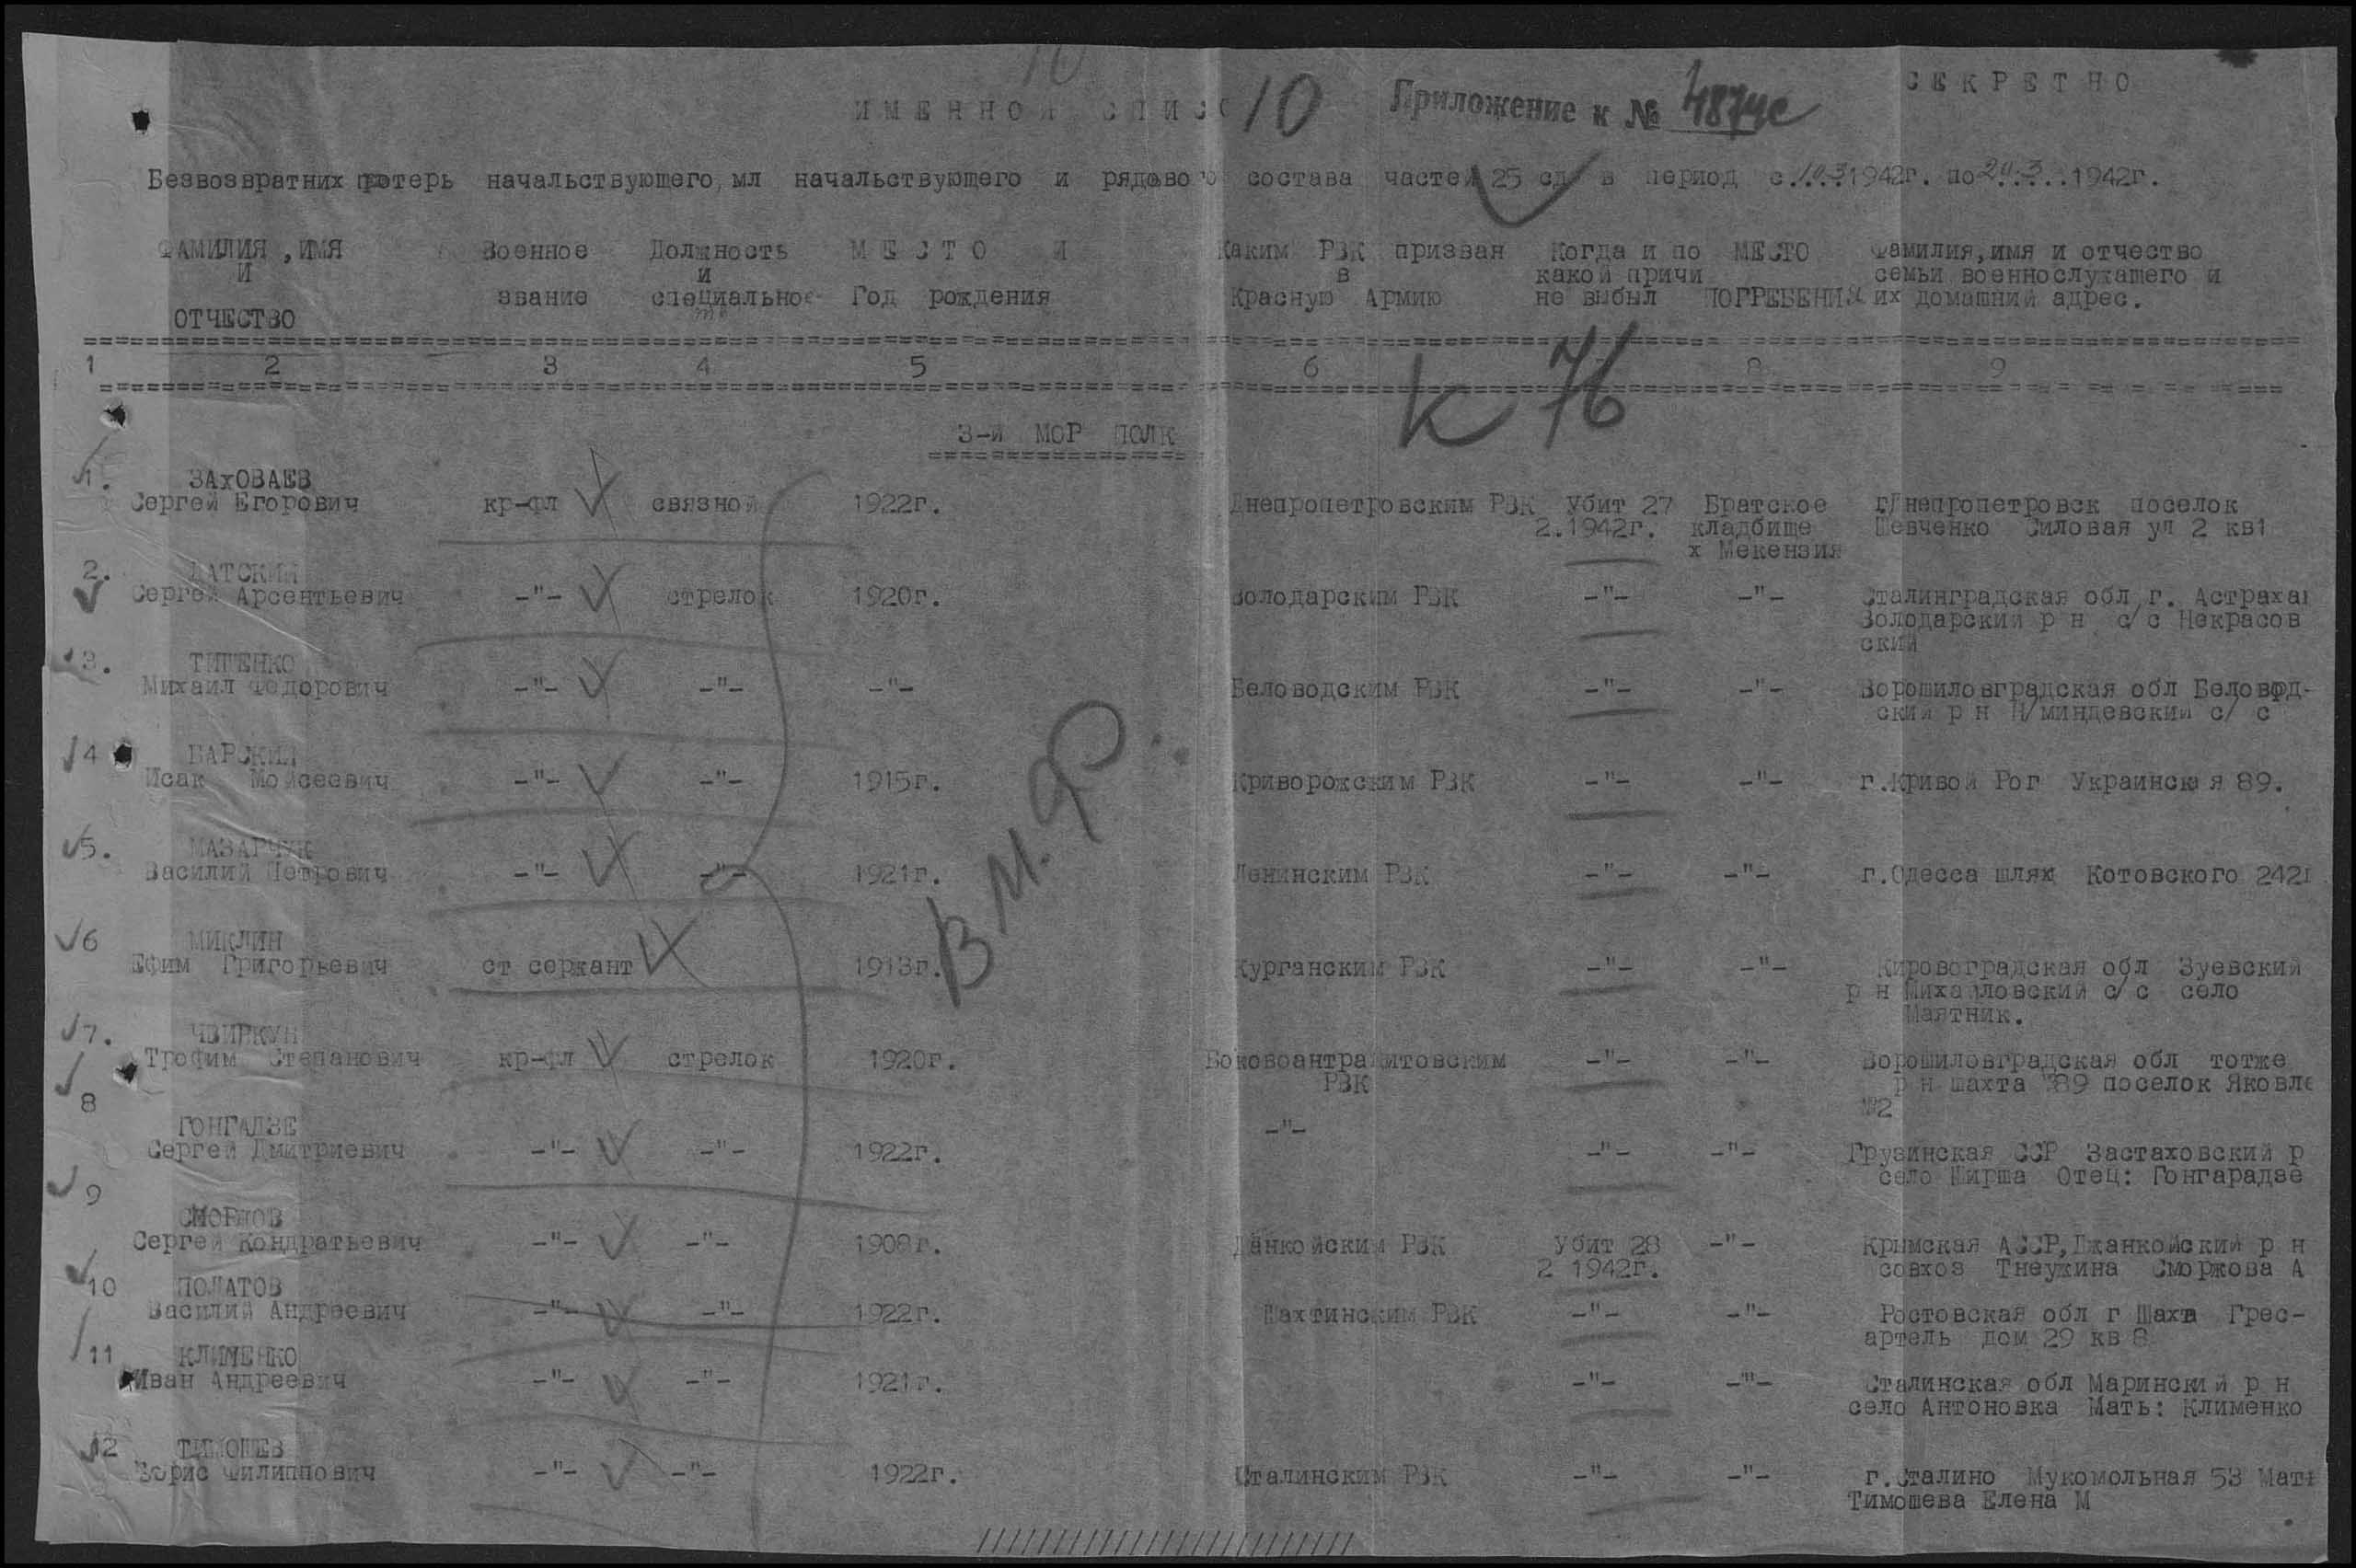 10
СЕКРЕТНО
ИМЕННОЙ СПИСО 10 Приложение к № 4874с
Безвозвратних потерь начальствующего, мл начальствующего и рядового состава частей 25 сд в период с 10.3.1942г. по 20.3...1942г.
ФАМИЛИЯ , ИМЯ Военное Должность МЕСТО И Каким РВК призван Когда и по МЕСТО Фамилия, имя и отчество
И и в какой причи семьи военнослужащего и
звание специальное Год рождения Красную Армию не выбыл ПОГРЕБЕНИЯ их домашний адрес.
ОТЧЕСТВО
1 2 3 4 5 6 8 9
К 76
3-й МОР ПОЛК
1. ЗАхОВАЕВ
Сергей Егорович кр-фл связной 1922г. Днепропетровским РВК Убит 27 Братское г.Днепропетровск поселок
2.1942г. кладбище Шевченко Силовая ул 2 кв1
х Мекензия
2. ЛАТСКИЙ
Сергей Арсентьевич -"- стрелок 1920г. Володарским РВК -"- -"- Сталинградская обл г. Астрахан
Володарский р н с/с Некрасов
ский
3. ТИТЕНКО
Михаил Федорович -"- -"- -"- Беловодским РВК -"- -"- Ворошиловградская обл Беловод-
ский р н Н/миндевский с/ с
4 БАРСКИЙ
Исак Мойсеевич -"- -"- 1915г. Криворожским РВК -"- -"- г.Кривой Рог Украинская 89.
5. МАЗАРЧУК
Василий Петрович -"- -"- 1921г. Ленинским РВК -"- -"- г.Одесса шлях Котовского 242
В М. Ф.
6 МИКЛИН
Ефим Григорьевич ст сержант 1913г. Курганским РВК -"- -"- Кировоградская обл Зуевский
р н Михайловский с/с село
Маятник.
7. ЧВИРКУН
Трофим Степанович кр-фл стрелок 1920г. Боковоантрацитовским -"- -"- Ворошиловградская обл тотже
РВК р н шахта №89 поселок Яковле
№2
8 ГОНГАДЗЕ -"-
Сергей Дмитриевич -"- -"- 1922г. -"- -"- Грузинская ССР Застаховский р
село Ширша Отец: Гонгарадзе
9 СМОРЖОВ
Сергей Кондратьевич -"- -"- 1908г. Данкойским РВК Убит 28 -"- Крымская АССР,Джанкойский р н
2 1942г. совхоз Тнеужина Сморжова А
10 ПОЛАТОВ
Василий Андреевич -"- -"- 1922г. Шахтинским РВК -"- -"- Ростовская обл г Шахта Грес-
артель дом 29 кв 8
11 КЛИМЕНКО
Иван Андреевич -"- -"- 1921г. -"- -"- Сталинская обл Маринский р н
село Антоновка Мать: Клименко
12 ТИМОШЕВ
Борис Филиппович -"- -"- 1922г. Сталинским РВК -"- -"- г.Сталино Мукомольная 53 Мать
Тимошева Елена М